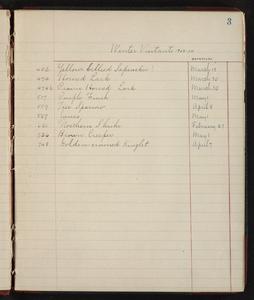 3
Winter Visitants
DEPARTURE
402 Yellow-bellied Sapsucker March 13
474 Horned Lark March 30
474b Prairie Horned Lark March 30
517 Purple Finch May 1
559 Tree Sparrow April 8
567 Junco May 1
621 Northern Shrike February 27
726 Brown Creeper May 1
748 Golden-crowned Kinglet April 7